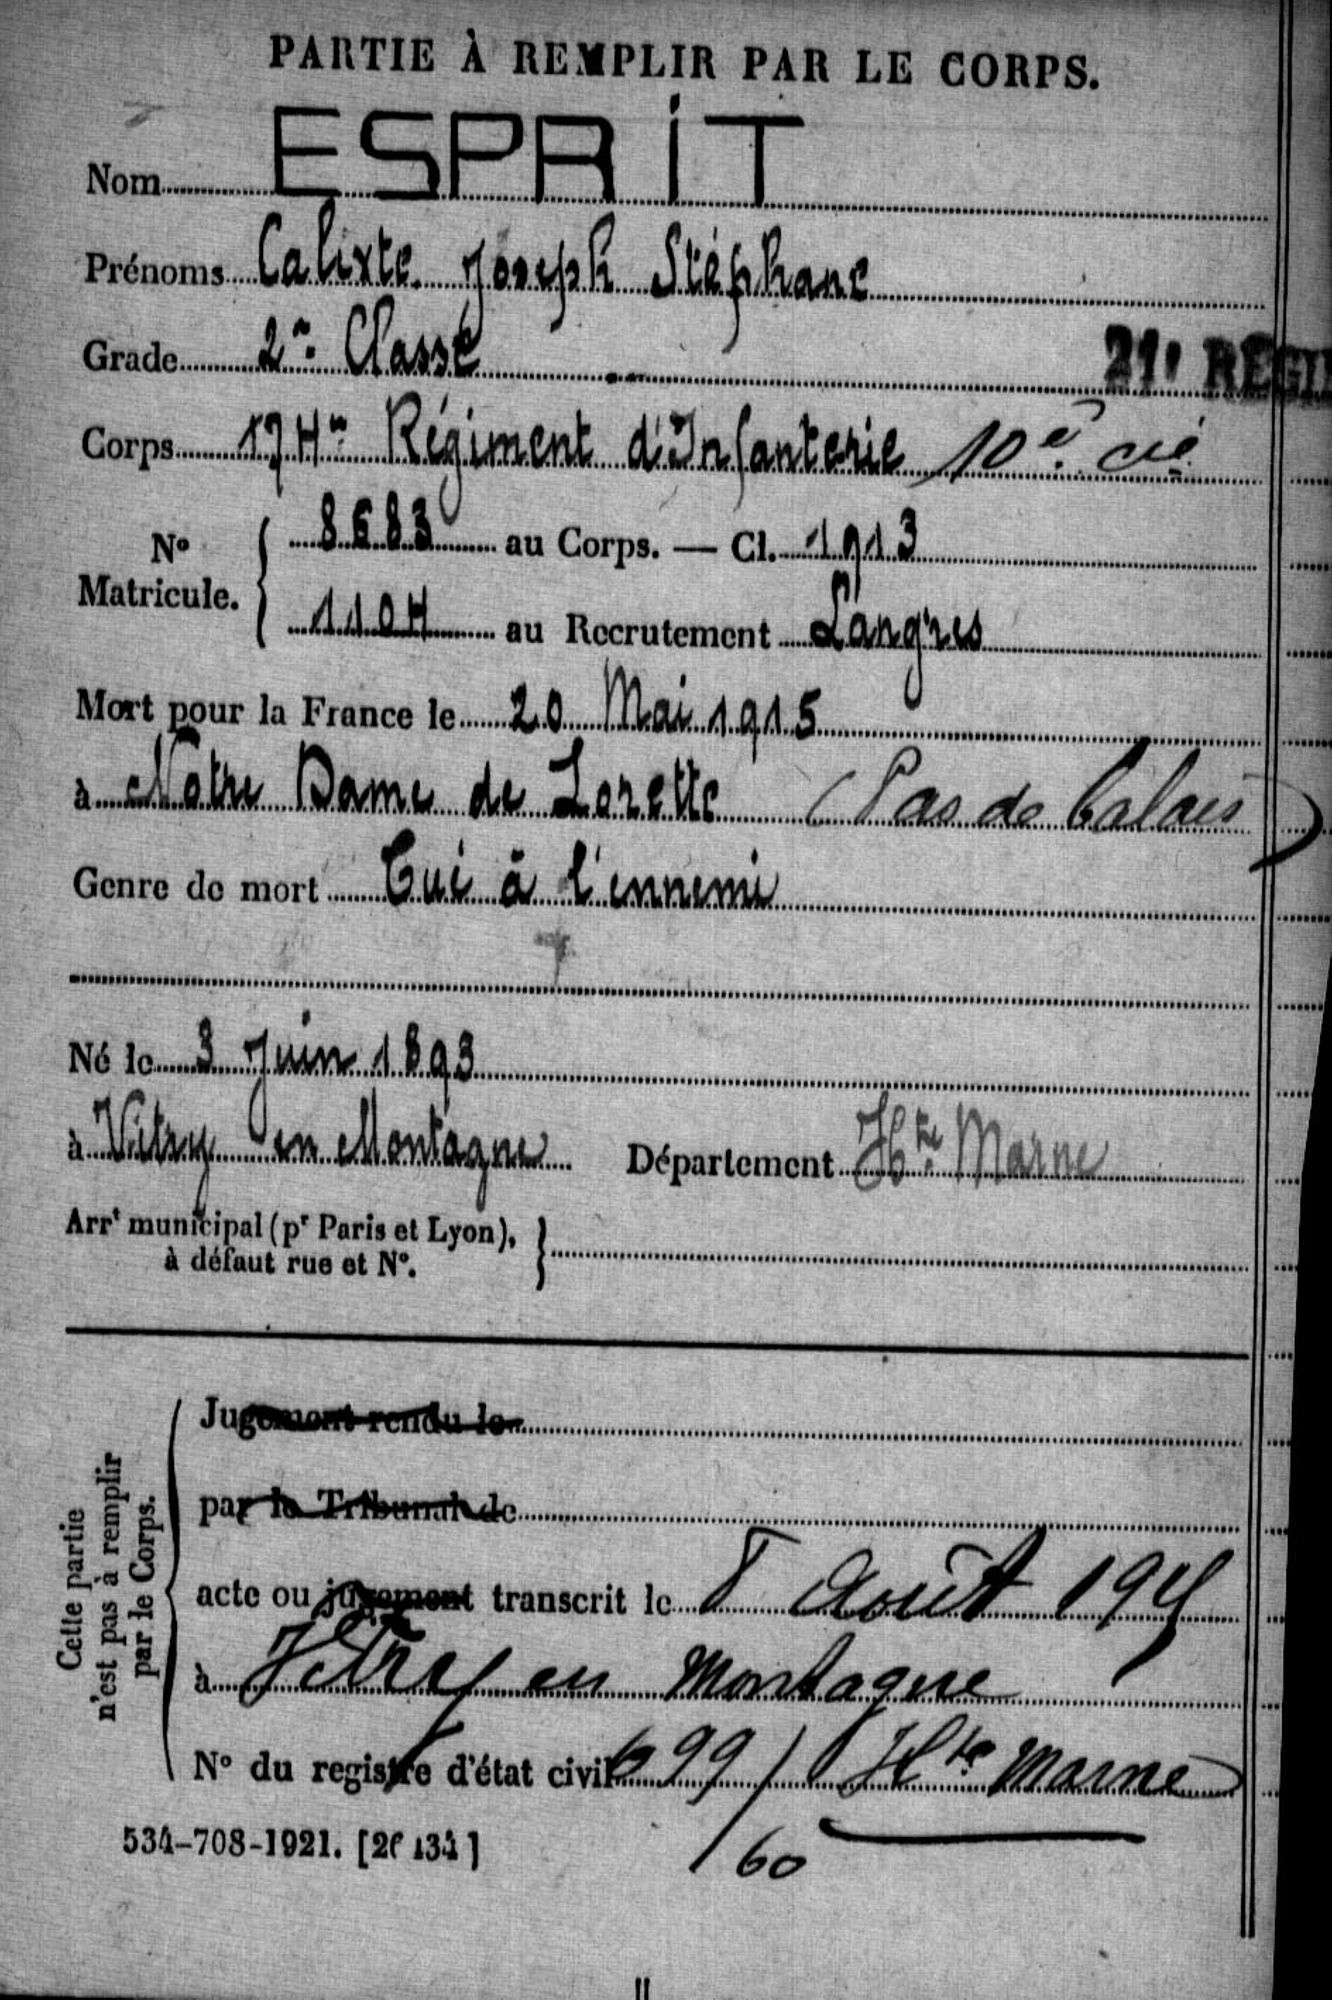 PARTIE À REMPLIR PAR LE CORPS.
Nom ESPRIT
Prénoms Calixte Joseph Stéphane
Grade 2me Classe
21e REGI
Corps 174me Régiment d'Infanterie 10e Cie
No Matricule. { 8683 au Corps. — Cl. 1913
1104 au Recrutement Langres
Mort pour la France le 20 Mai 1915
à Notre Dame de Lorette (Pas de Calais)
Genre de mort Tué à l'ennemi
Né le 3 Juin 1893
à Vitry en Montagne Département Hte Marne
Arrt municipal (pr Paris et Lyon),
à défaut rue et No.
Cette partie
n'est pas à remplir
par le Corps.
Jugement rendu le
par le Tribunal de
acte ou jugement transcrit le 8 Août 1915
à Vitry en Montagne
No du registre d'état civil (Hte Marne)
699/60
534-708-1921.